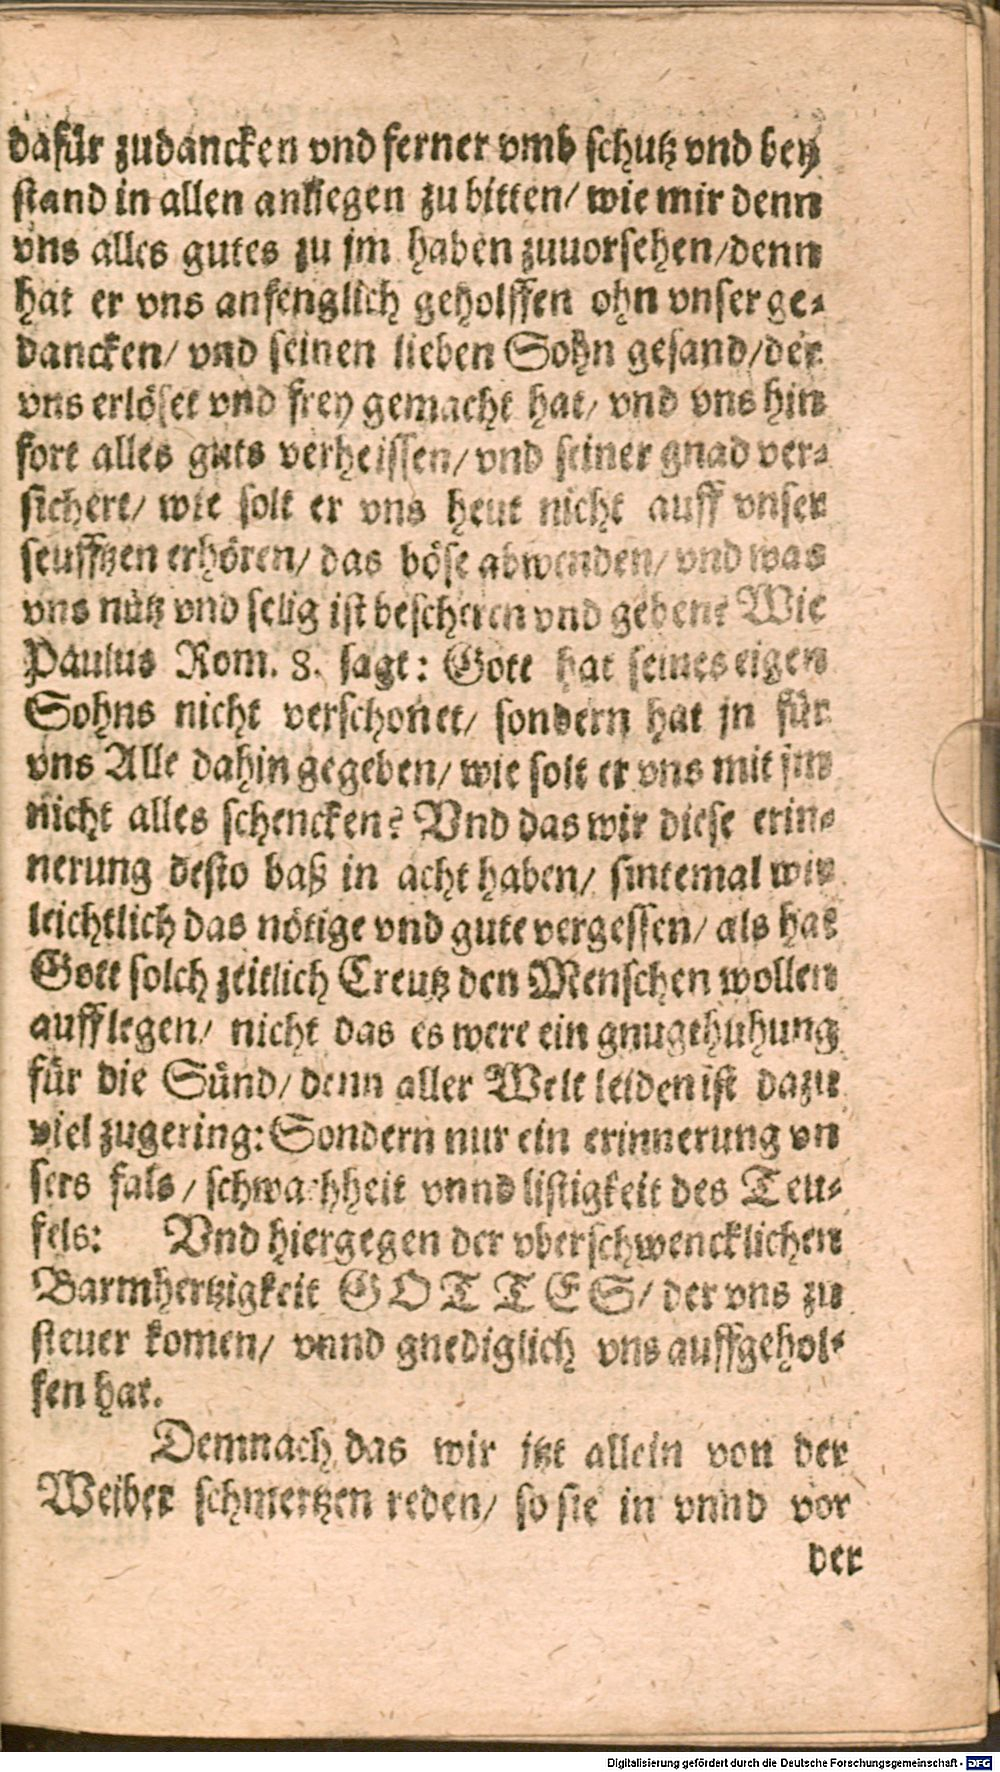 dafür zudancken vnd ferner vmb schutz vnd bey
stand in allen anliegen zu bitten/ wie mir denn
vns alles gutes zu jm haben zuuorsehen/denn
hat er vns anfenglich geholffen ohn vnser ge-
dancken/ vnd seinen lieben Sohn gesand/der
vns erlöset vnd frey gemacht hat/ vnd vns hin
fort alles guts verheissen/ vnd seiner gnad ver-
sichert/ wie solt er vns heut nicht auff vnser
seufftzen erhören/ das böse abwenden/ vnd was
vns nütz vnd selig ist bescheren vnd geben? Wie
Paulus Rom. 8. sagt: Gott hat seines eigen
Sohns nicht verschonet/ sondern hat jn für
vns Alle dahin gegeben/ wie solt er vns mit jm
nicht alles schencken? Vnd das wir diese erin-
nerung desto baß in acht haben/ sintemal wir
leichtlich das nötige vnd gute vergessen/ als hat
Gott solch zeitlich Creutz den Menschen wollen
aufflegen/ nicht das es were ein gnugthuhung
für die Sünd/ denn aller Welt leiden ist dazu
viel zugering: Sondern nur ein erinnerung vn
sers fals/ schwachheit vnnd listigkeit des Teu-
fels: Vnd hiergegen der vberschwencklichen
Barmhertzigkeit GOTTES/ der vns zu
steuer komen/ vnnd gnediglich vns auffgehol-
fen hat.
Demnach das wir itzt allein von der
Weiber schmertzen reden/ so sie in vnnd vor
der
Digitalisierung gefördert durch die Deutsche Forschungsgemeinschaft - DFG